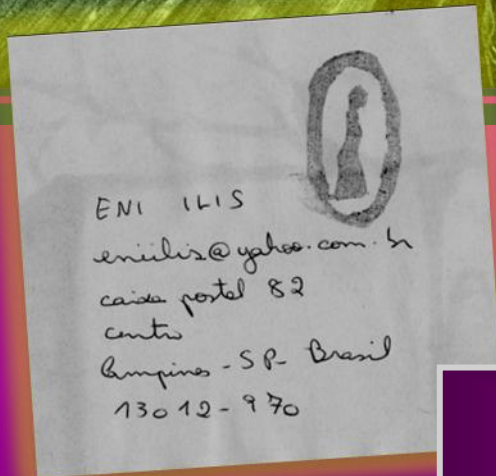 ENI ILIS
eniilis@yahoo.com.br
caixa postal 82
centro
Campinas - SP - Brasil
13012-970